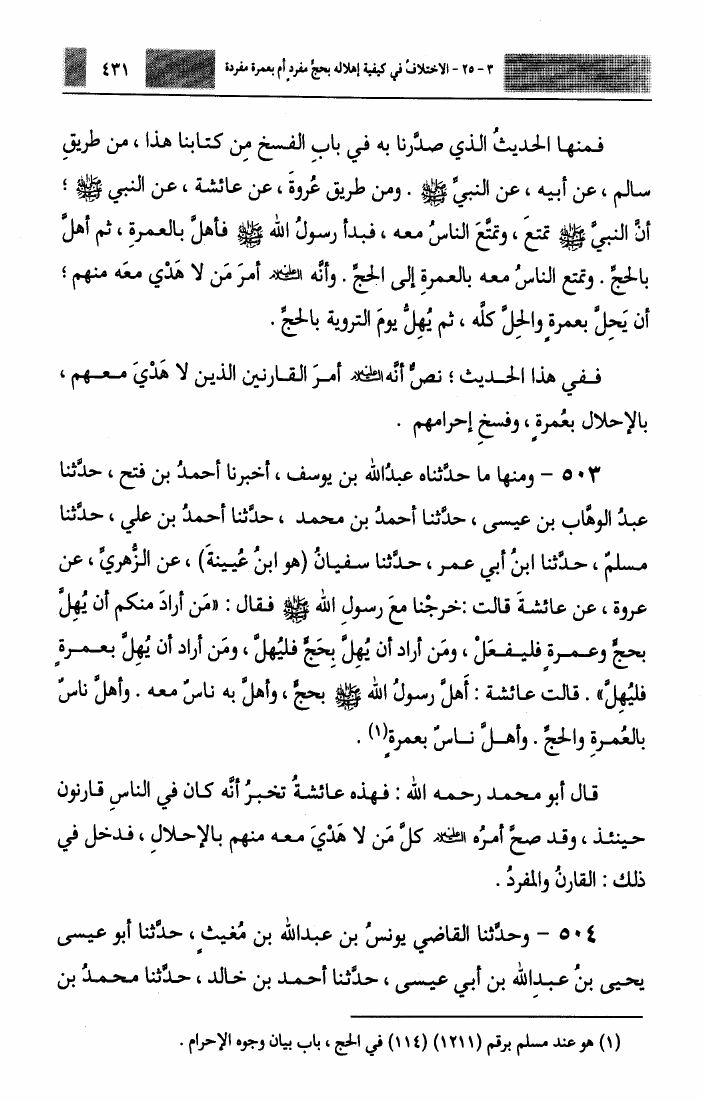 ٣ - ٢٥ - الاختلافُ في كيفية إهلاله بحجٍّ مفردٍ أم بعمرة مفردة ٤٣١
فـمنهـا الحديثُ الـذي صدَّرنا به في بابِ الفـسخ مِن كـتـابنا هذا ، من طريقِ
سالم ، عن أبيه ، عن النبيِّ ﷺ . ومن طريق عُروةَ ، عن عائشة ، عن النبي ﷺ ؛
أنَّ النبيَّ ﷺ تمتعَ ، وتمتَّعَ الناسُ معه ، فبدأ رسولُ الله ﷺ فأهلَّ بالعمرةِ ، ثم أهلَّ
بالحجِّ . وتمتع الناسُ معه بالعمرةِ إلى الحجِّ . وأنَّه عليه السلام أمرَ مَن لا هَدْي معَه منهم ؛
أن يَحِلَّ بعمرةٍ والحِلَّ كلَّه ، ثم يُهِلُّ يومَ التروية بالحجِّ .
فـفي هذا الحـديث ؛ نصٌّ أنَّه عليه السلام أمـرَ القـارنين الذيـن لا هَدْيَ مـعـهم ،
بالإحلال بعُمرةٍ ، وفسخِ إحرامهم .
٥٠٣ - ومنها ما حدَّثناه عبدُالله بن يوسف ، أخبرنا أحمدُ بن فتح ، حدَّثنا
عبدُ الوهَّاب بن عيسى ، حدَّثنا أحمدُ بن محمد ، حدَّثنا أحمدُ بن علي ، حدَّثنا
مسلمٌ ، حدَّثنا ابنُ أبي عمر ، حدَّثنا سفيانُ (هو ابنُ عُيينةَ) ، عن الزُّهريِّ ، عن
عروة ، عن عائشةَ قالت :خرجْنا معَ رسولِ الله ﷺ فـقال : «مَن أرادَ منكم أن يُهِلَّ
بحجٍّ وعـمـرةٍ فليـفـعَلْ ، ومَن أراد أن يُهِلَّ بِحَجٍّ فليُهلَّ ، ومَن أراد أن يُهِلَّ بعـمـرةٍ
فليُهِلَّ» . قالت عائشة : أَهلَّ رسولُ الله ﷺ بحجٍّ ، وأهلَّ به ناسٌ معه . وأهلَّ ناسٌ
بالعُمرةِ والحجِّ . وأهـلَّ نـاسٌ بعمرةٍ(١) .
قال أبو محمد رحمه الله : فهذه عائشةُ تخبرُ أنَّه كان في الناسِ قارنون
حينئذ ، وقد صحَّ أمرُه عليه السلام كلَّ مَن لا هَدْيَ معه منهم بالإحلالِ ، فدخل في
ذلك : القارنُ والمفردُ .
٥٠٤ - وحدَّثنا القاضي يونسُ بن عبدالله بن مُغيثٍ ، حدَّثنا أبو عيسى
يحيى بنُ عبدِالله بن أبي عيسى ، حدَّثنا أحمد بن خالد ، حدَّثنا محمدُ بن
(١) هو عند مسلم برقم (١٢١١) (١١٤) في الحج ، باب بيان وجوه الإحرام .